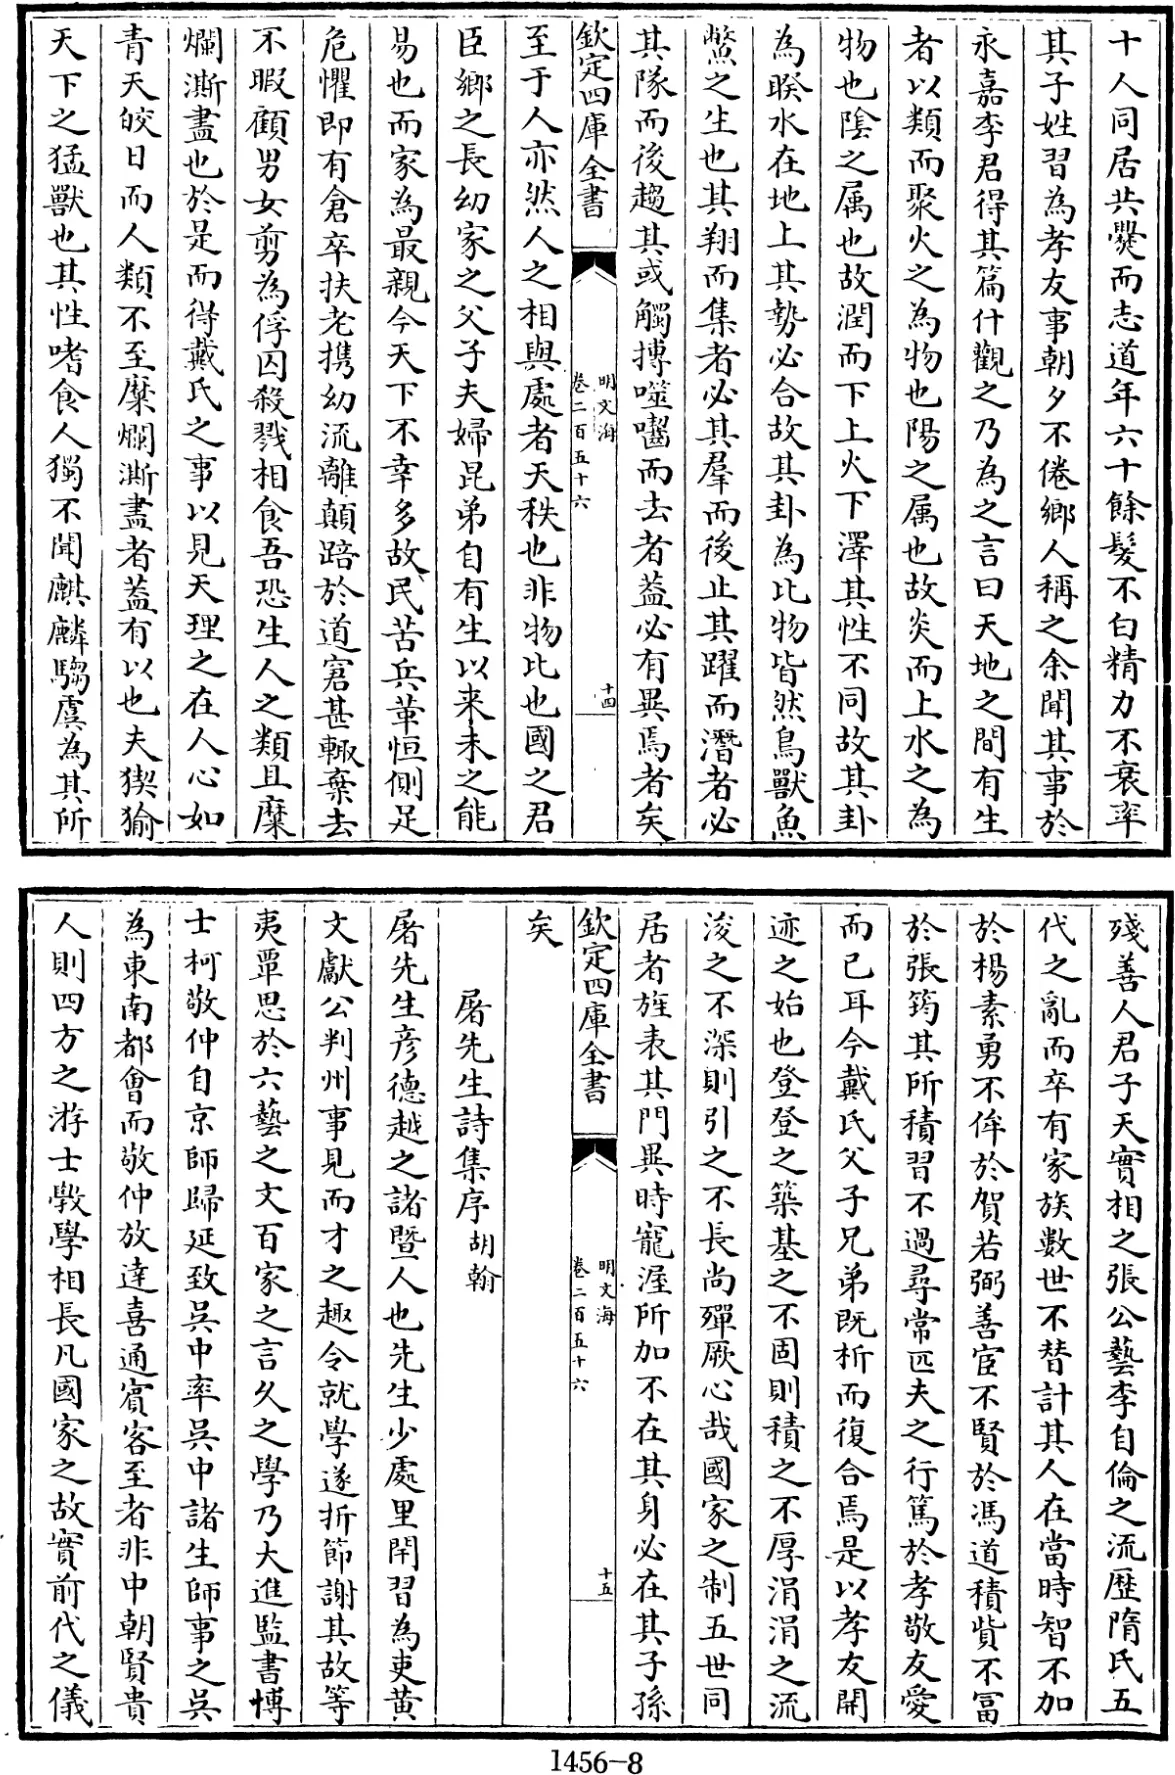 十人同居共爨而志道年六十餘髮不白精力不衰率
其子姓習為孝友事朝夕不倦鄉人稱之余聞其事於
永嘉李君得其篇什觀之乃為之言曰天地之間有生
者以類而聚火之為物也陽之属也故炎而上水之為
物也陰之属也故潤而下上火下澤其性不同故其卦
為睽水在地上其勢必合故其卦為比物皆然鳥獸魚
鱉之生也其翔而集者必其羣而後止其躍而潛者必
其隊而後趨其或觸摶噬囓而去者蓋必有異焉者矣
欽定四庫全書
明文海
卷二百五十六
十四
至于人亦然人之相與處者天秩也非物比也國之君
臣鄉之長幼家之父子夫婦昆弟自有生以来未之能
易也而家為最親今天下不幸多故民苦兵革恒側足
危懼即有倉卒扶老攜幼流離顛踣於道窘甚輙棄去
不暇顧男女剪為俘囚殺戮相食吾恐生人之類且糜
爛澌盡也於是而得戴氏之事以見天理之在人心如
青天皎日而人類不至糜爛澌盡者蓋有以也夫猰貐
天下之猛獸也其性嗜食人獨不聞麒麟騶虞為其所
殘善人君子天實相之張公藝李自倫之流歷隋氏五
代之亂而卒有家族數世不替計其人在當時智不加
於楊素勇不侔於賀若弼善宦不賢於馮道積貲不冨
於張筠其所積習不過尋常匹夫之行篤於孝敬友愛
而已耳今戴氏父子兄弟既析而復合焉是以孝友開
迹之始也登登之築基之不固則積之不厚涓涓之流
浚之不深則引之不長尚殫厥心哉國家之制五世同
居者旌表其門異時寵渥所加不在其身必在其子孫
欽定四庫全書
明文海
卷二百五十六
十五
矣
屠先生詩集序胡翰
屠先生彦德越之諸暨人也先生少處里閈習為吏黄
文獻公判州事見而才之趣令就學遂折節謝其故等
夷覃思於六藝之文百家之言久之學乃大進監書博
士柯敬仲自京師歸延致吳中率吳中諸生師事之吳
為東南都會而敬仲放達喜通賓客至者非中朝賢貴
人則四方之游士斆學相長凡國家之故實前代之儀
1456-8